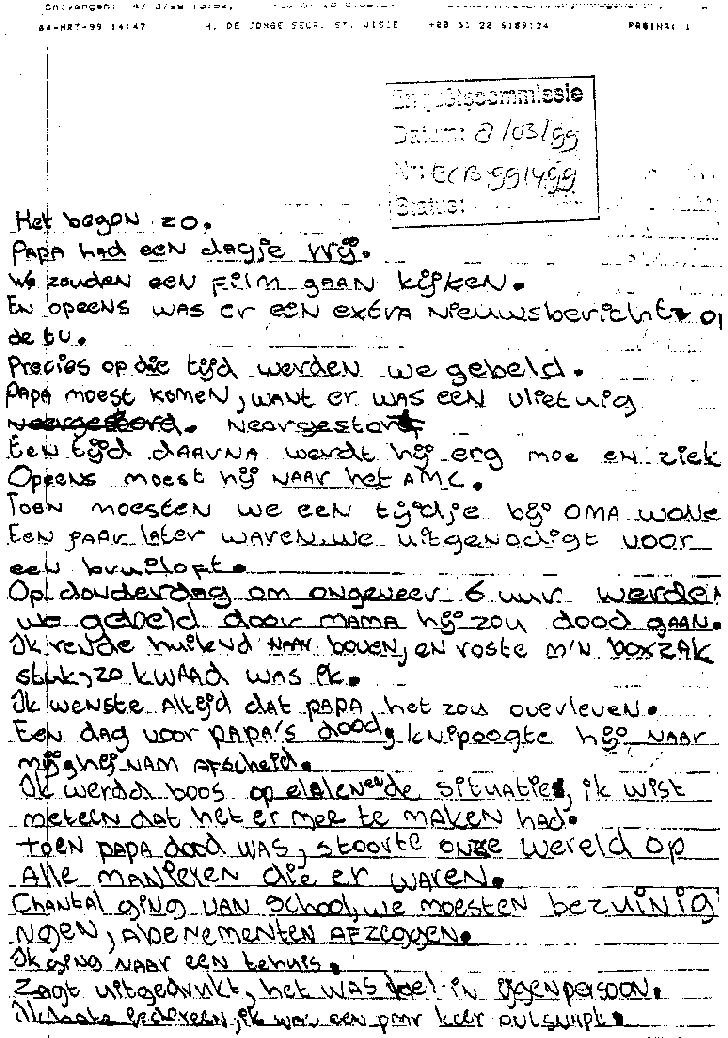 04-MRT-99 14:47 H. DE JONGE SECR. ST. VISIE PAGINA: 1
Enquêtecommissie
Datum: 8/03/99
Nr: ECB 991499
Status:
Het begon zo.
PAPA had EEN dagje vrij.
We zouden EEN FilM gaan kijken.
En opeens was er een extra Nieuwsbericht op
de tv.
Precies op die tijd werden we gebeld.
PAPA moest komen, want er was een vlietuig
Neergestord. Neergestort
Een tijd daarna werdt hij erg moe en ziek
Opeens moest hij NAAR het AMC.
Toen moesten we een tijdje bij OMA wone
Een paar later waren we uitgenodigt voor
een bruiloft.
Op donderdag om ongeveer 6 uur werden
we gebeld door mama hij zou dood gaan.
Ik rende huilend NAAR boven, en roste m'n boxzak
stuk, zo kwaad was ik.
Ik wenste Altijd dat PAPA, het zou overleven.
Een dag voor PAPA's dood, knipoogte hij NAAR
mij, hij NAM Afscheid.
Ik werdd boos op situatie, ik wist
meteen dat het er mee te maken had.
toen PAPA dood was, stoorte onze wereld op
Alle manieren die er waren.
Chantal ging van school, we moesten bezuinig
ngen, Abenementen Afzeggen.
Ik ging NAAR een tehuis.
Zagt uitgedrukt, het was hel in eigenpersoon.
ik was een paar keer